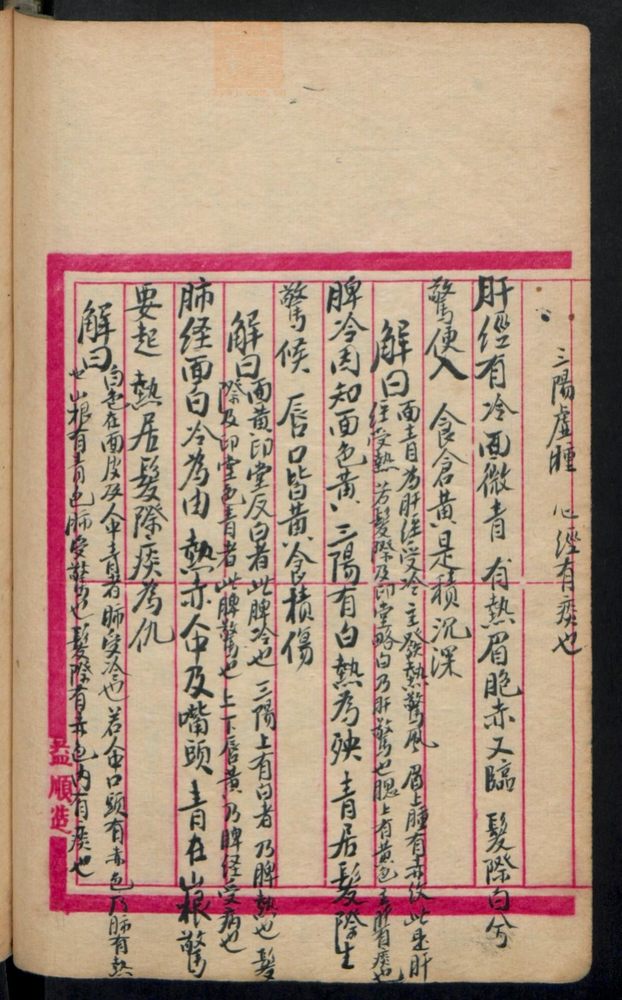 三陽虛腫 心經有痰也
肝經有冷面微青 有熱眉胞赤又臨 髮際白兮
驚便入 食倉黃是積沉深
解曰面青為肝經受冷 主發熱驚風 眉上腫有赤紋此是肝
經受熱 芳髮際及印堂略白乃肝驚也 腮上有黃色
脾冷因知面色黃 三陽有白熱為殃 青居髮際生
驚候 唇口皆黃食積傷
解曰面黃印堂反白者此脾冷也 三陽上有白者乃脾熱也 髮
際及印堂色青者此脾驚也 上下唇黃乃脾經受病也
肺經面白冷為由 熱赤人中及嘴頭 青在山根驚
要起 熱居髮際痰為仇
解曰白色在面皮及人中青者肺受冷也 若人中口頭有赤色乃肺有熱
也 山根有青色肺受驚也 髮際有赤色內有痰也
益順造